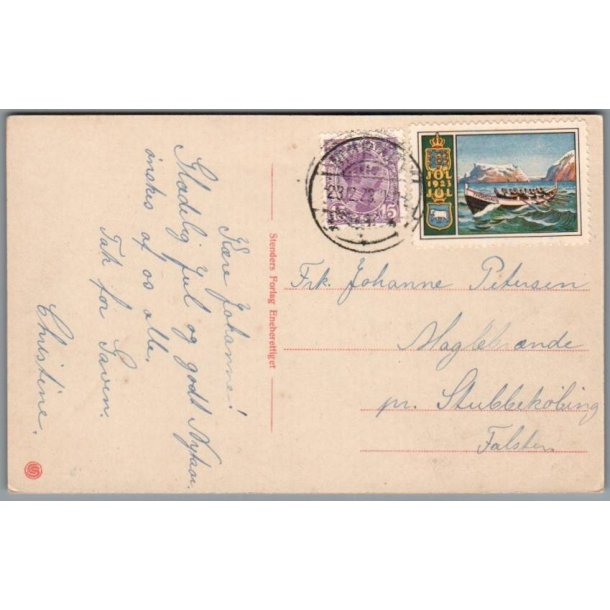 Kære Johanne!
Glædelig Jul og godt Nytaar
ønskes af os alle.
Tak for Gaven.
Christine.
Stenders Forlag Eneberettiget
23.12.23
15
JUL
1923
JÓL
Frk. Johanne Petersen
Maglebrænde
pr. Stubbekøbing
Falster